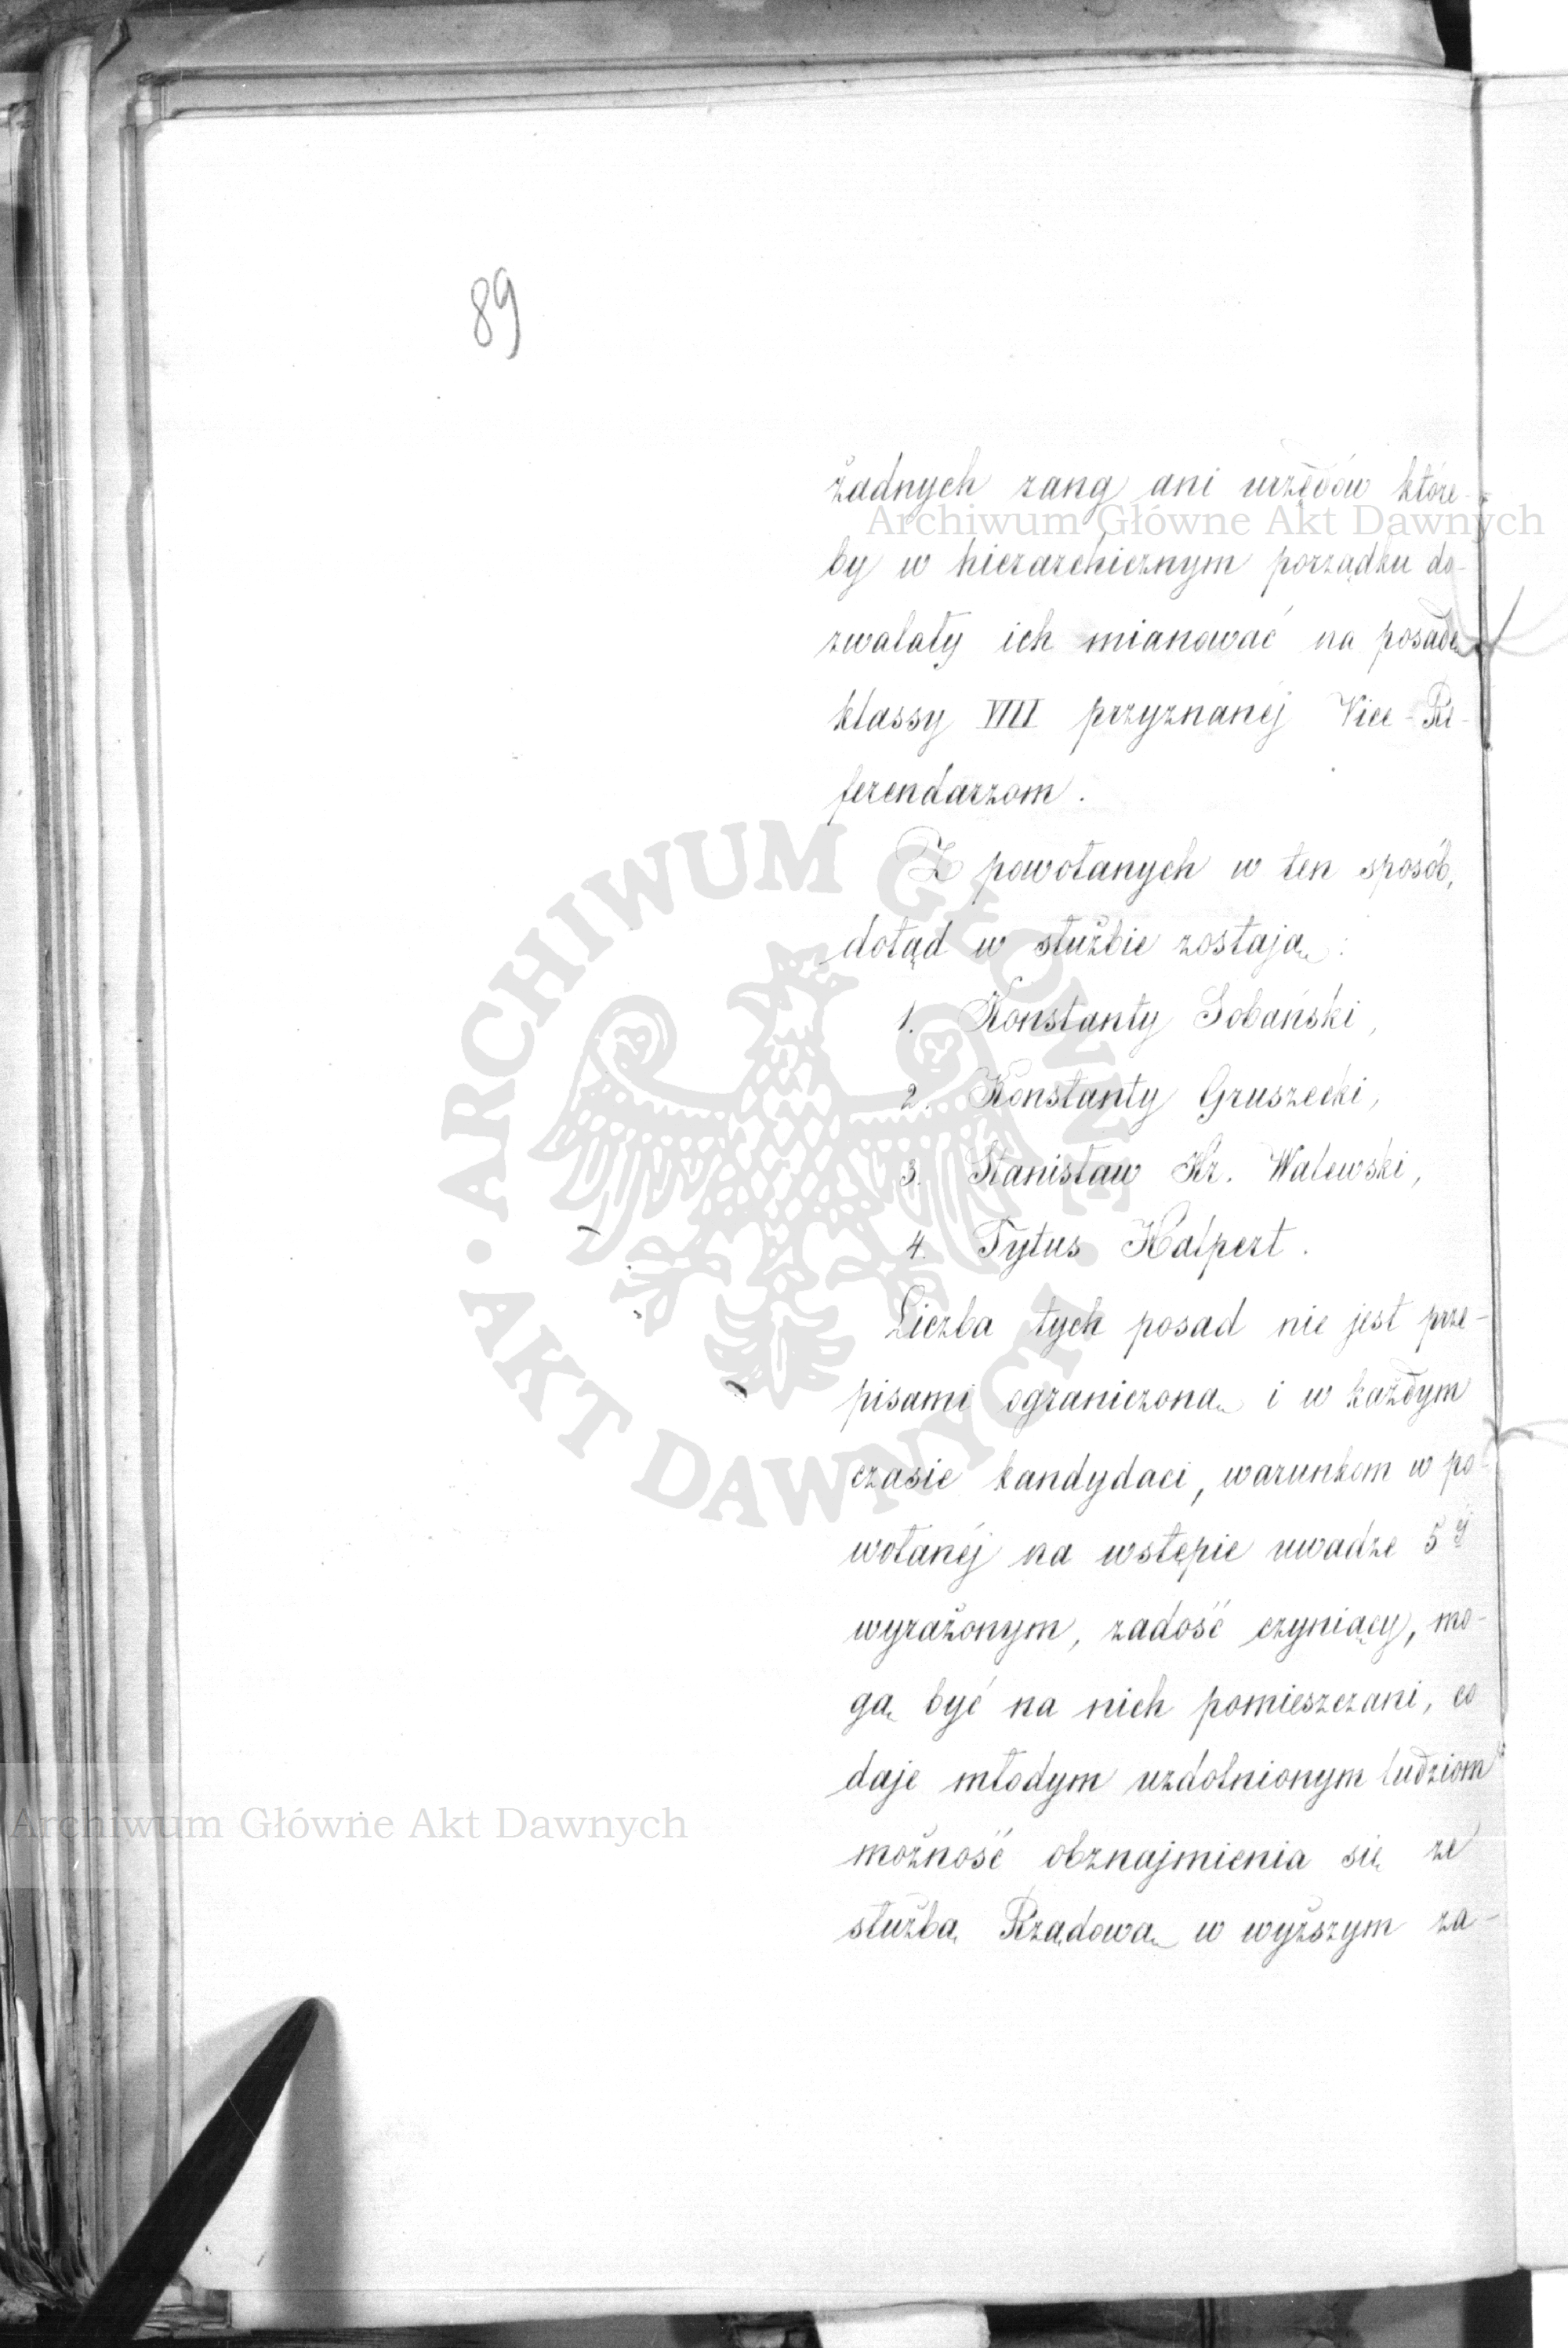 89
żadnych rang ani urzędów które-
by w hierarchicznym porządku do-
zwalały ich mianować na posadę
klassy VIII przyznanéj Vice-Re-
ferendarzom.
Z powołanych w ten sposób,
dotąd w służbie zostają:
1. Konstanty Sobański,
2. Konstanty Gruszecki,
3. Stanisław Hr. Walewski,
4. Tytus Halpert.
Liczba tych posad nie jest prze-
pisami ograniczoną i w każdym
czasie kandydaci, warunkom w po-
wołanéj na wstępie uwadze 5éj
wyrażonym, zadość czyniący, mo-
gą być na nich pomieszczani, co
daje młodym uzdolnionym ludziom
możność obznajmienia się ze
służbą Rządową w wyższym za-
Archiwum Główne Akt Dawnych
ARCHIWUM GŁÓWNE · AKT DAWNYCH ·
Archiwum Główne Akt Dawnych